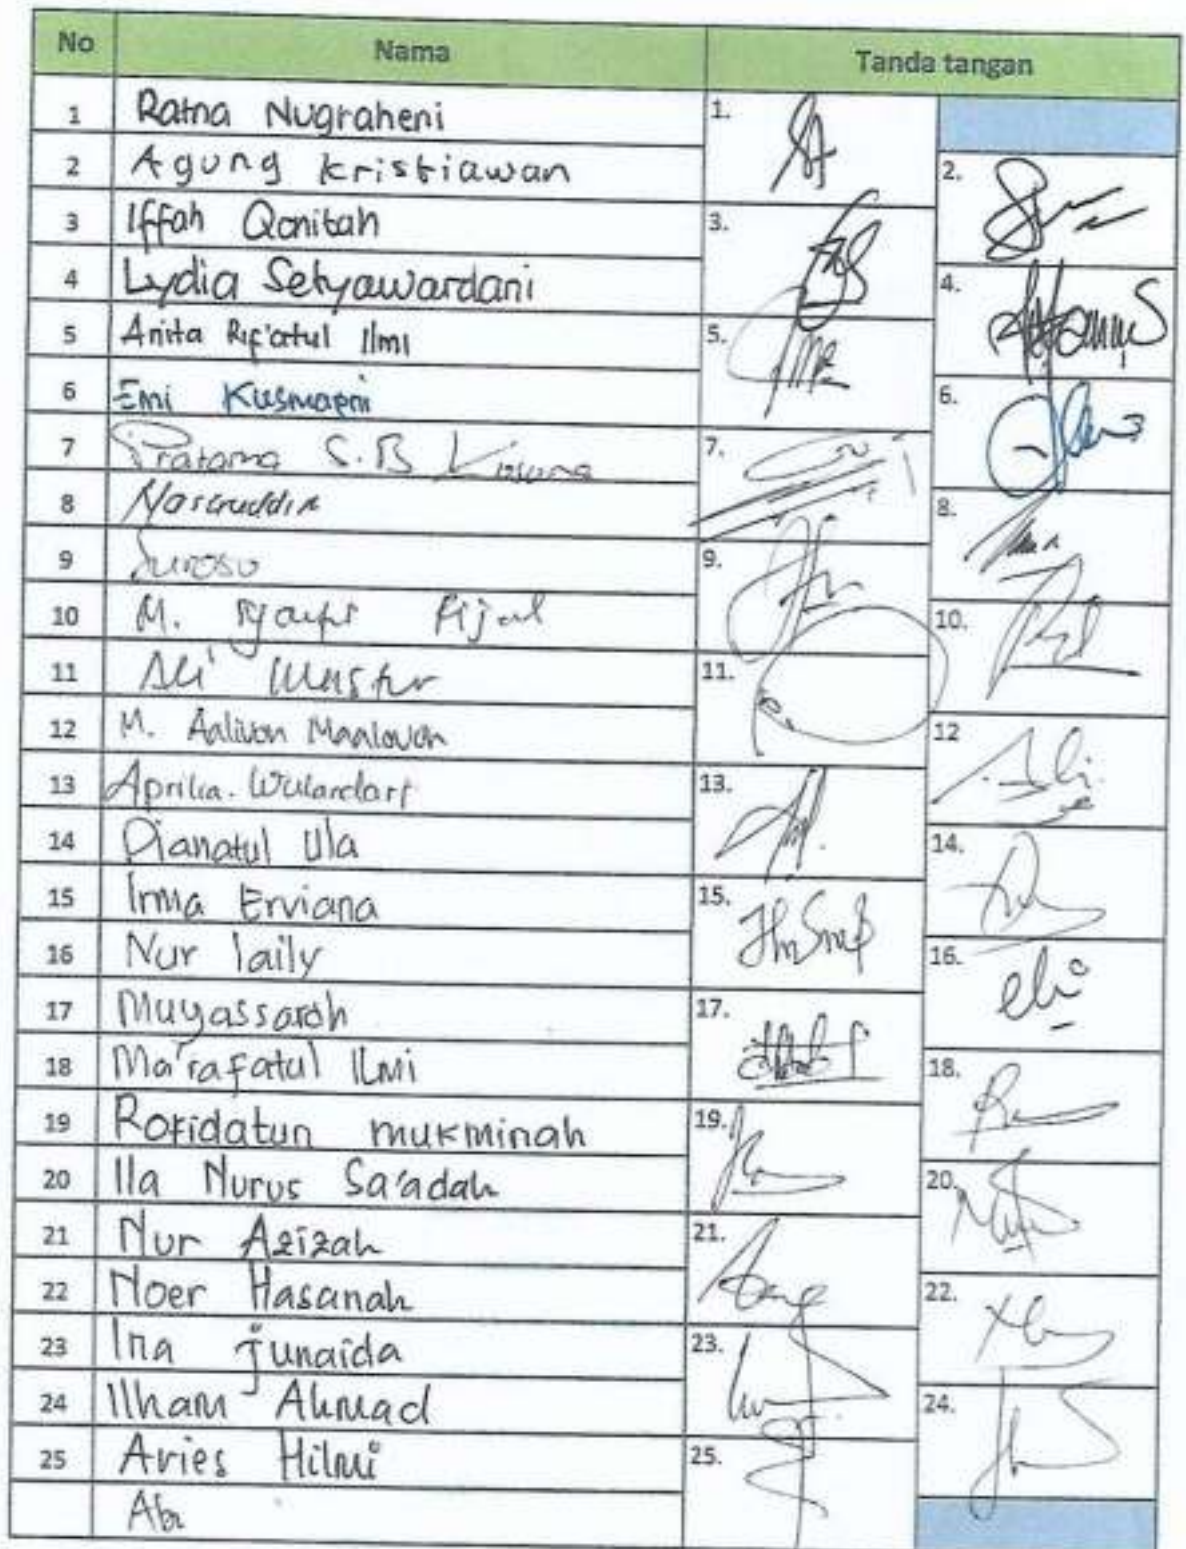 No Nama Tanda tangan
1 Ratna Nugraheni 1.
2 Agung Kristiawan 2.
3 Iffah Qonitah 3.
4 Lydia Setyawardani 4.
5 Anita Rif'atul Ilmi 5.
6 Emi Kusmapni 6.
7 Pratama S.B 7.
8 Nasruddin 8.
9 Suroso 9.
10 M. 10.
11 Ali 11.
12 M. Aalivan Maalovan 12
13 Aprilia. Wulandari 13.
14 Dianatul Ula 14.
15 Irma Erviana 15.
16 Nur laily 16.
17 Muyassaroh 17.
18 Ma'rafatul Ilmi 18.
19 Rofidatun mukminah 19.
20 Ila Nurus Sa'adah 20.
21 Nur Azizah 21.
22 Noer Hasanah 22.
23 Ina junaida 23.
24 Ilham Ahmad 24.
25 Aries Hilmi 25.